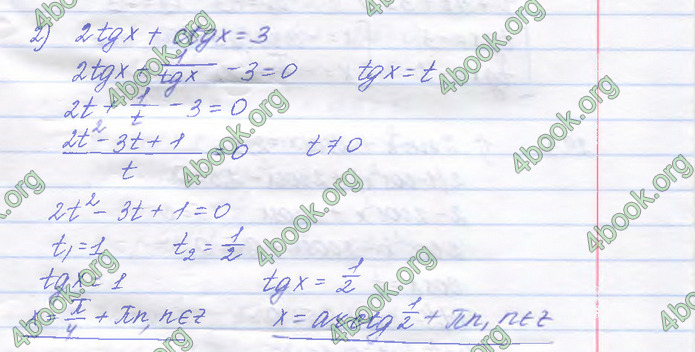 2) 2tgx + ctgx = 3
2tgx + 1/tgx - 3 = 0 tgx = t
2t + 1/t - 3 = 0
(2t² - 3t + 1)/t = 0 t ≠ 0
2t² - 3t + 1 = 0
t₁ = 1 t₂ = 1/2
tgx = 1 tgx = 1/2
x = π/4 + πn, n∈Z x = arctg 1/2 + πn, n∈Z
4book.org
4book.org
4book.org
4book.org
4book.org
4book.org
4book.org
4book.org